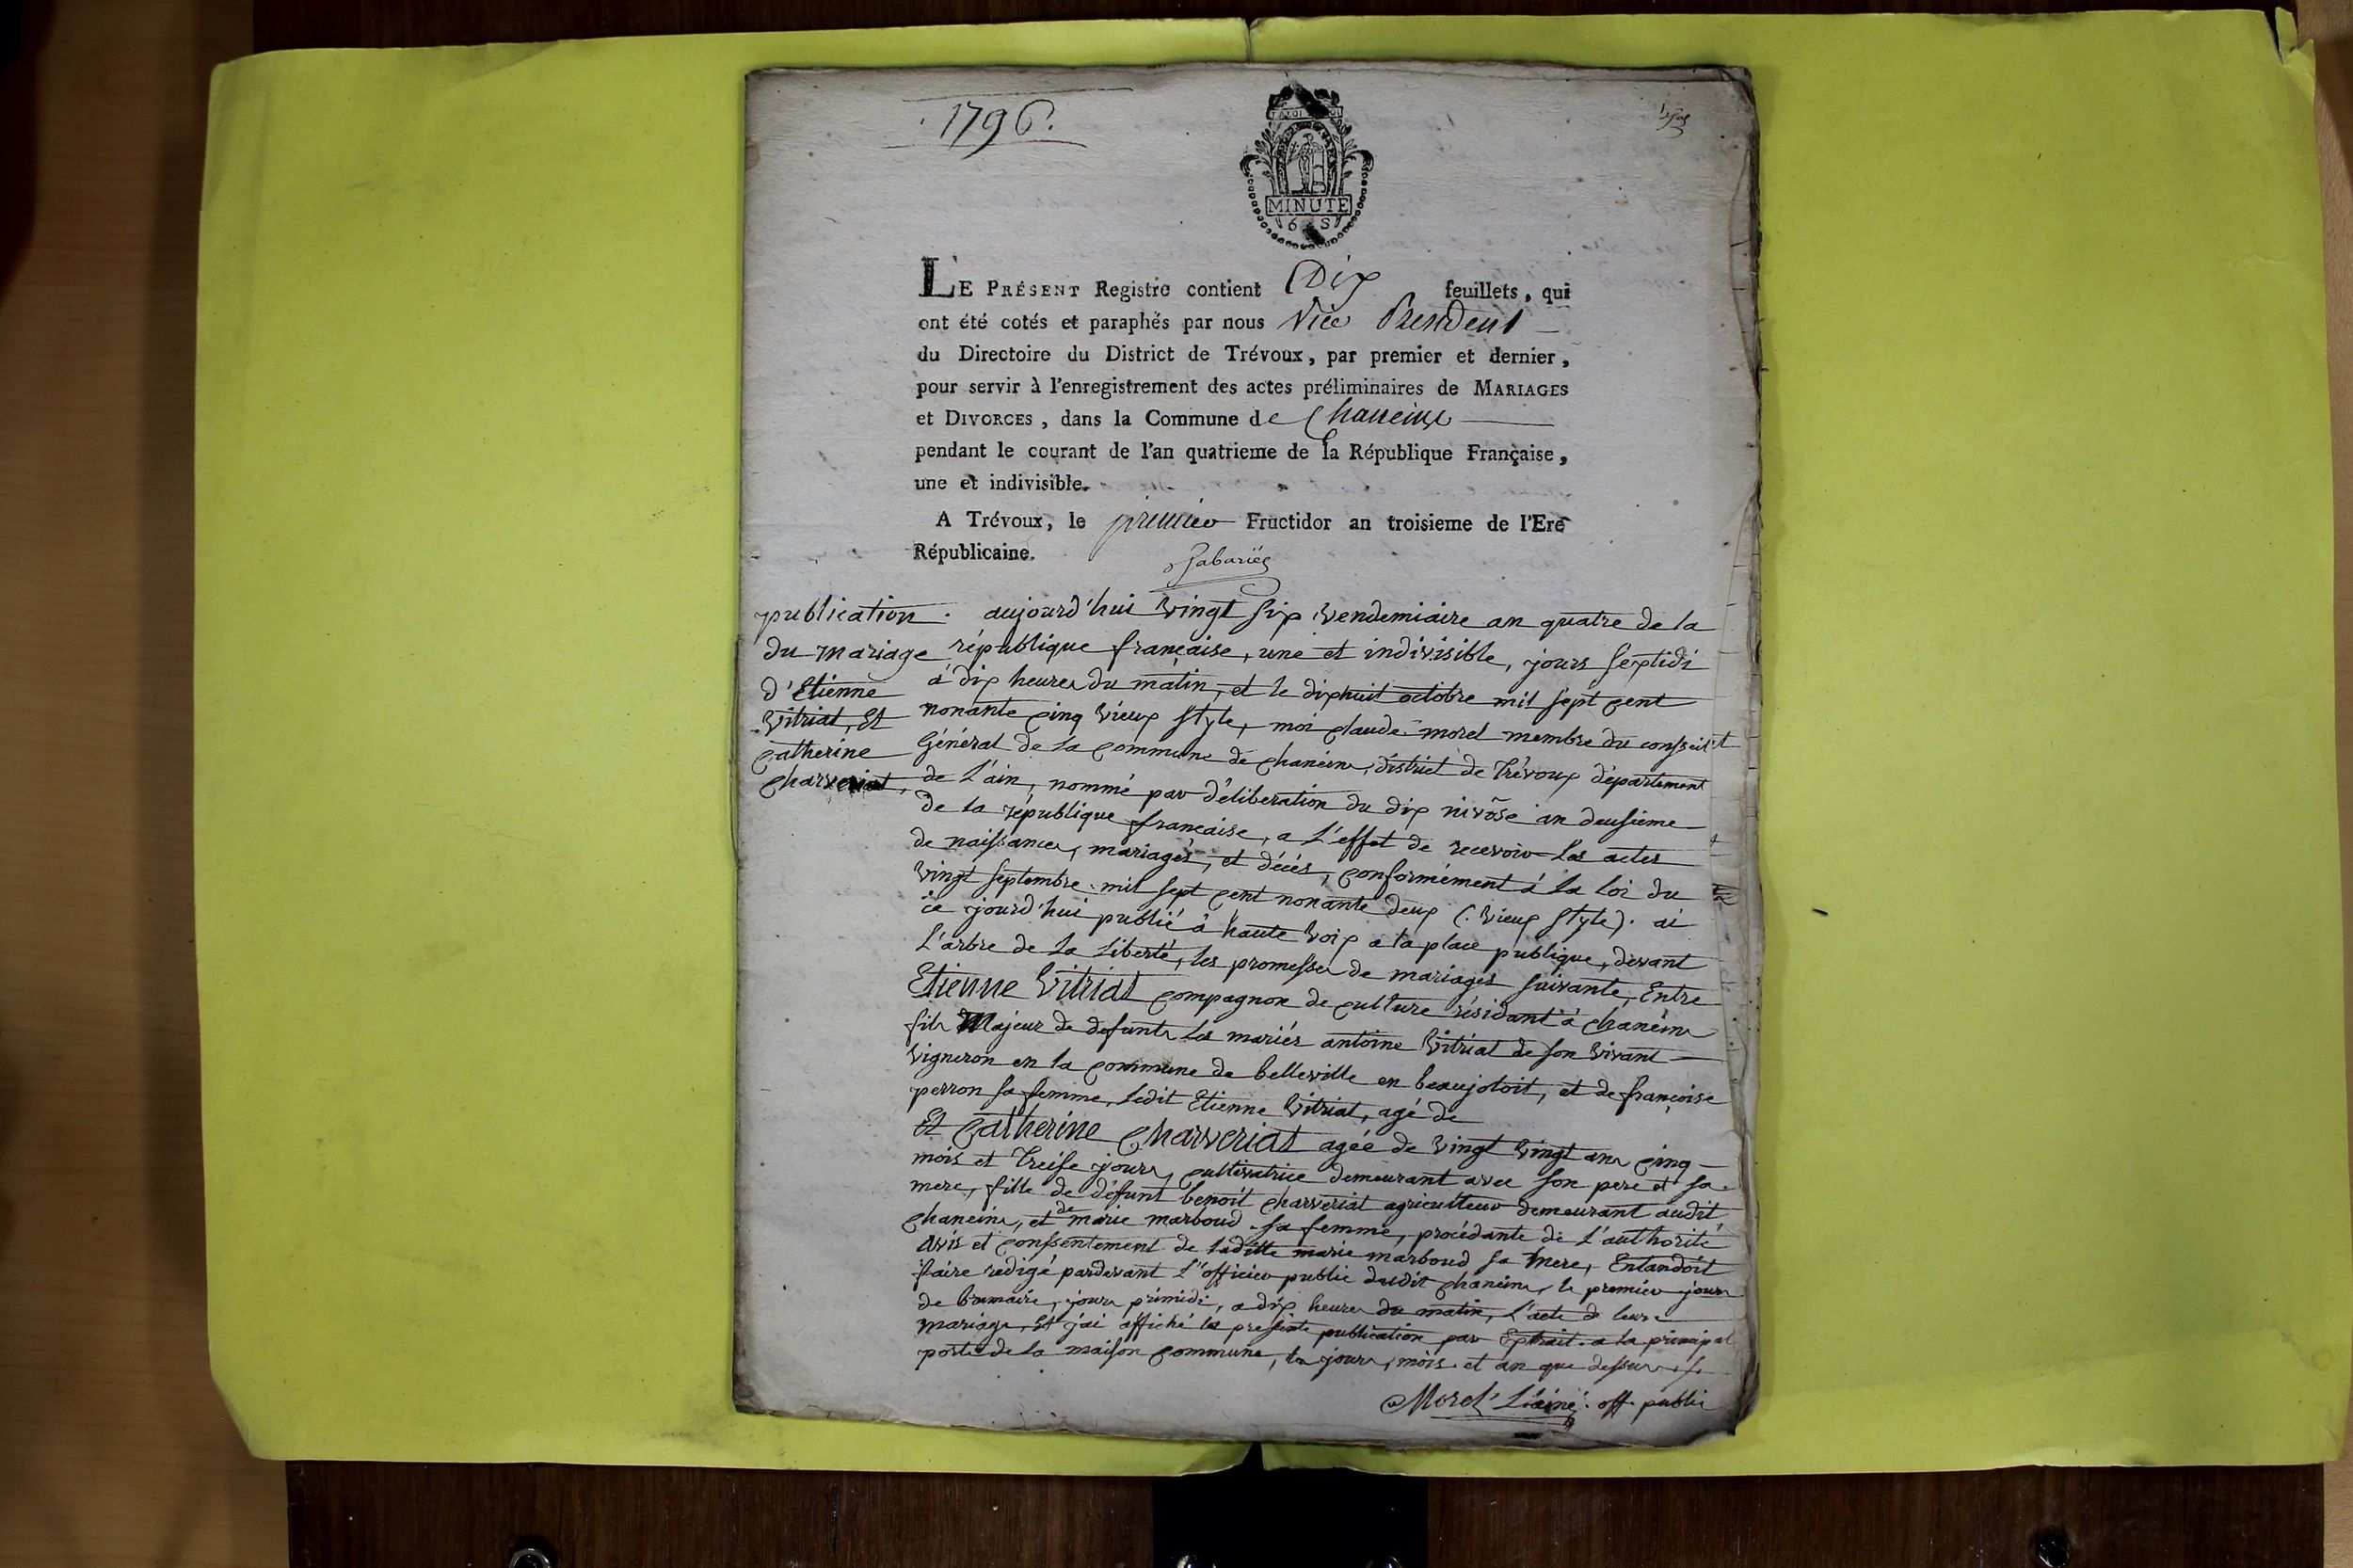 1796.
MINUTE
6 S
LE PRÉSENT Registre contient Dix feuillets, qui
ont été cotés et paraphés par nous Vice President
du Directoire du District de Trévoux, par premier et dernier,
pour servir à l'enregistrement des actes préliminaires de MARIAGES
et DIVORCES, dans la Commune de Chaneins
pendant le courant de l'an quatrieme de la République Française,
une et indivisible.
A Trévoux, le premier Fructidor an troisieme de l'Ere
Républicaine.
publication
du mariage
d'Etienne
Vitriat, Et
Catherine
Charveriat,
aujourd'hui Vingt six vendemiaire an quatre de la
république française, une et indivisible, jours septidi
à dix heures du matin, et le dixhuit octobre mil sept cent
nonante cinq vieux style, moi claude morel membre du conseil
Général de la commune de chaneins, district de Trévoux département
de L'ain, nommé par déliberation du dix nivôse an deusieme
de la république francaise, a L'effet de recevoir les actes
de naissances, mariages, et décés, conformément à la loi du
vingt septembre mil sept cent nonante deux (vieux style). ai
ce jourd'hui publié à haute voix a la place publique, devant
L'arbre de la Liberté, les promesses de mariages suivante, Entre
Etienne Vitriat compagnon de culture résidant à chaneins
fils Majeur de defunts les mariés antoine Vitriat de son vivant
vigneron en la commune de belleville en beaujoloit, et de françoise
perron sa femme, ledit Etienne Vitriat, agé de
Et Catherine Charveriat agée de vingt vingt ans cinq
mois et treise jours, cultivatrice demeurant avec son pere et sa
mere, fille de défunt benoit charveriat agriculteur demeurant audit
chaneins, et de marie marboud sa femme, procédante de L'authorité
avis et consentement de laditte marie marboud sa mere, Entandoit
faire redigé pardevant L'officier public dudit chaneins, le premier jours
de brumaire, jours primidi, a dix heures du matin, L'acte de leurs
mariage, Et j'ai affiché la presente publication par Extrait a la principal
porte de la maison commune, les jours, mois et an que dessus
Morel L'ainé off. public